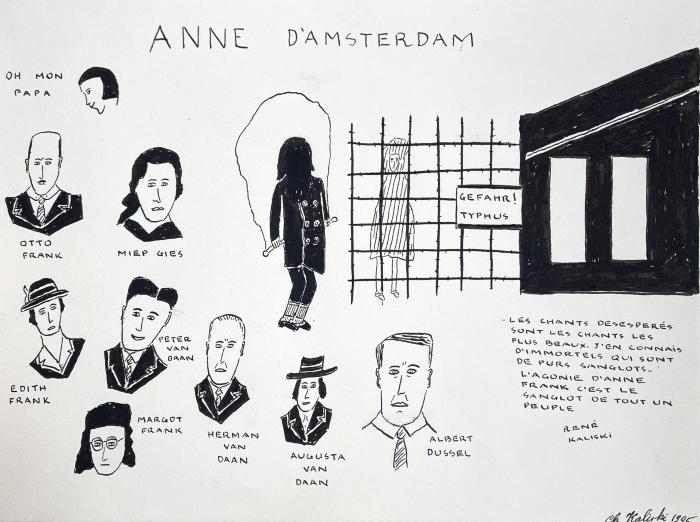 ANNE D'AMSTERDAM
OH MON
PAPA
OTTO
FRANK
MIEP GIES
GEFAHR!
TYPHUS
EDITH
FRANK
PETER
VAN
DAAN
MARGOT
FRANK
HERMAN
VAN
DAAN
AUGUSTA
VAN
DAAN
ALBERT
DUSSEL
LES CHANTS DESESPERÉS
SONT LES CHANTS LES
PLUS BEAUX. J'EN CONNAIS
D'IMMORTELS QUI SONT
DE PURS SANGLOTS..
L'AGONIE D'ANNE
FRANK C'EST LE
SANGLOT DE TOUT UN
PEUPLE
RENÉ
KALISKI
Ch Kaliski